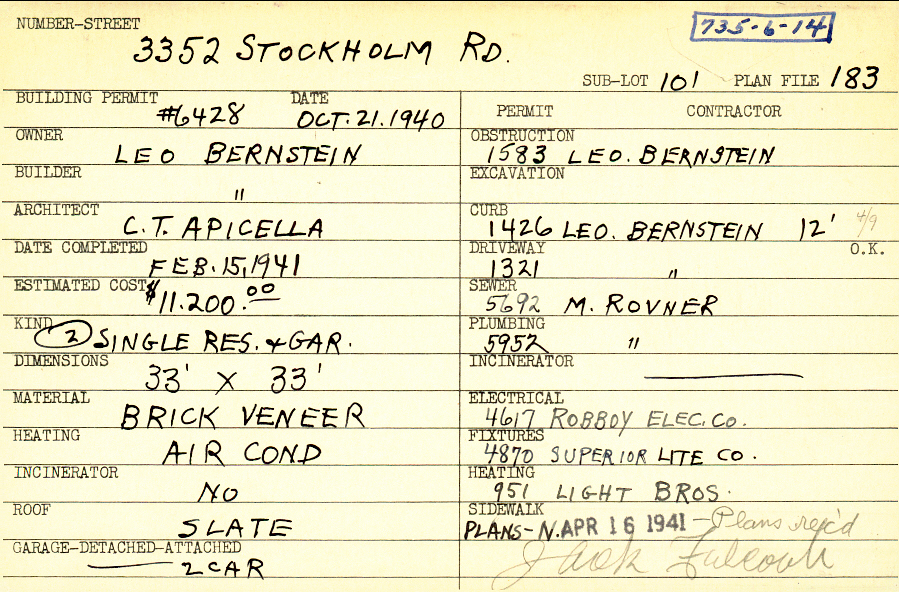 NUMBER-STREET
735-6-14
3352 STOCKHOLM RD.
SUB-LOT 101 PLAN FILE 183
BUILDING PERMIT DATE
#6428 OCT. 21. 1940
OWNER
LEO BERNSTEIN
BUILDER
"
ARCHITECT
C.T. APICELLA
DATE COMPLETED
FEB. 15, 1941
ESTIMATED COST
$11.200.00
KIND
2 SINGLE RES. & GAR.
DIMENSIONS
33' X 33'
MATERIAL
BRICK VENEER
HEATING
AIR COND
INCINERATOR
NO
ROOF
SLATE
GARAGE-DETACHED-ATTACHED
2 CAR
PERMIT CONTRACTOR
OBSTRUCTION
1583 LEO. BERNSTEIN
EXCAVATION
CURB
1426 LEO. BERNSTEIN 12' 4/9
DRIVEWAY O.K.
1321 "
SEWER
5692 M. ROVNER
PLUMBING
5952 "
INCINERATOR
ELECTRICAL
4617 ROBBOY ELEC. CO.
FIXTURES
4870 SUPERIOR LITE CO.
HEATING
951 LIGHT BROS.
SIDEWALK
PLANS-N. APR 16 1941 - Plans rec'd
Jack